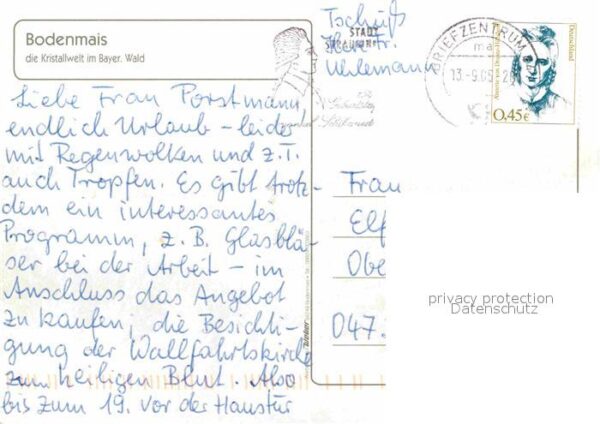 Bodenmais
die Kristallwelt im Bayer. Wald
Liebe Frau Porstmann,
endlich Urlaub - leider
mit Regenwolken und z.T.
auch Tropfen. Es gibt trotz-
dem ein interessantes
Programm, z.B. Glasblä-
ser bei der Arbeit - im
Anschluss das Angebot
zu kaufen, die Besichti-
gung der Wallfahrtskirche
zum heiligen Blut. Also
bis zum 19. vor der Haustür
Tschüß
Ihre Fr.
Uhlemann
STADT
BRIEFZENTRUM
13.-9.05
Deutschland
0,45€
Frau
Elf
Obe
047
privacy protection
Datenschutz